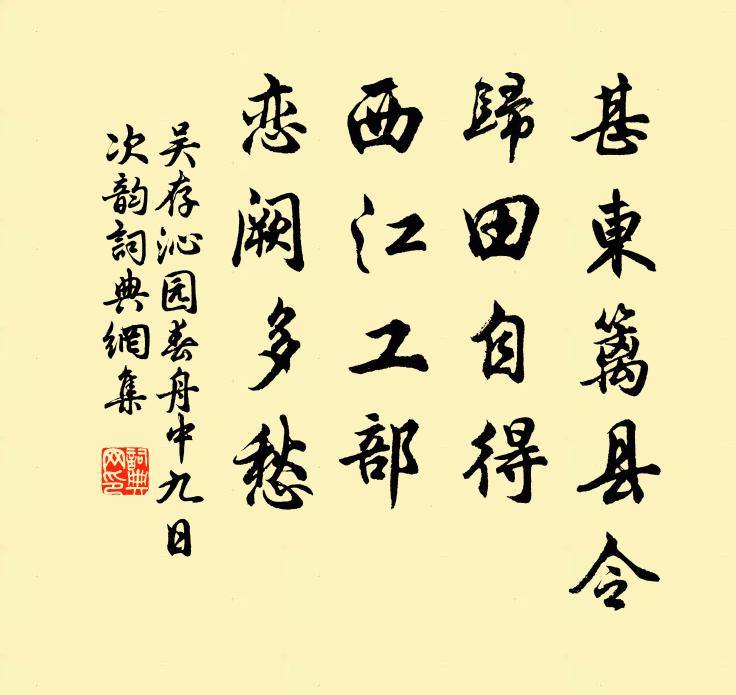 甚東籬县令
歸田自得
西江工部
恋阙多愁
吴存沁园春舟中九日
次韵詞典網集
詞典
网印